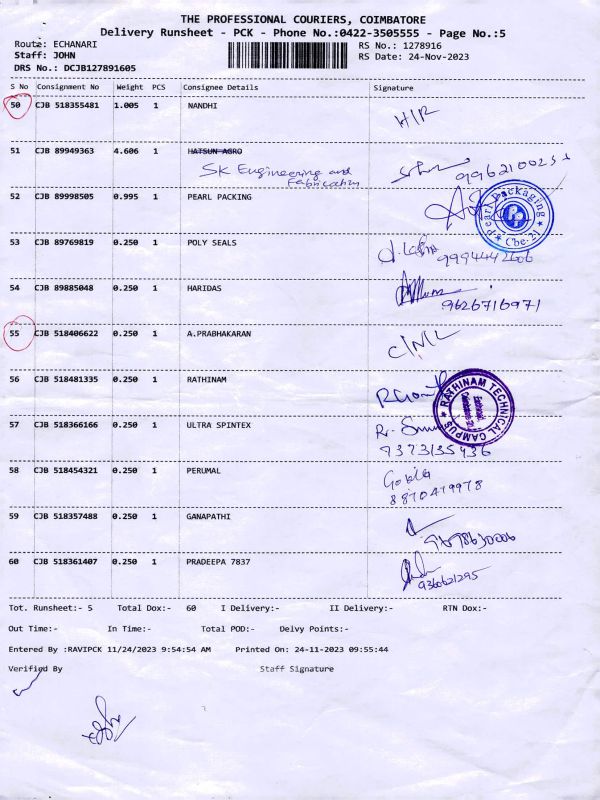 THE PROFESSIONAL COURIERS, COIMBATORE
Delivery Runsheet - PCK - Phone No.:0422-3505555 - Page No.:5
Route: ECHANARI RS No.: 1278916
Staff: JOHN RS Date: 24-Nov-2023
DRS No.: DCJB127891605
S No Consignment No Weight PCS Consignee Details Signature
50 CJB 518355481 1.005 1 NANDHI
51 CJB 89949363 4.606 1 HATSUN AGRO
SK Engineering and
Fabrication
52 CJB 89998505 0.995 1 PEARL PACKING
Pearl Packaging
Cbe-21
53 CJB 89769819 0.250 1 POLY SEALS
9994442606
54 CJB 89885048 0.250 1 HARIDAS
9626716971
55 CJB 518406622 0.250 1 A.PRABHAKARAN
56 CJB 518481335 0.250 1 RATHINAM
RATHINAM TECHNICAL CAMPUS
57 CJB 518366166 0.250 1 ULTRA SPINTEX
9373135436
58 CJB 518454321 0.250 1 PERUMAL
8870479978
59 CJB 518357488 0.250 1 GANAPATHI
60 CJB 518361407 0.250 1 PRADEEPA 7837
9360621295
Tot. Runsheet:- 5 Total Dox:- 60 I Delivery:- II Delivery:- RTN Dox:-
Out Time:- In Time:- Total POD:- Delvy Points:-
Entered By :RAVIPCK 11/24/2023 9:54:54 AM Printed On: 24-11-2023 09:55:44
Verified By Staff Signature